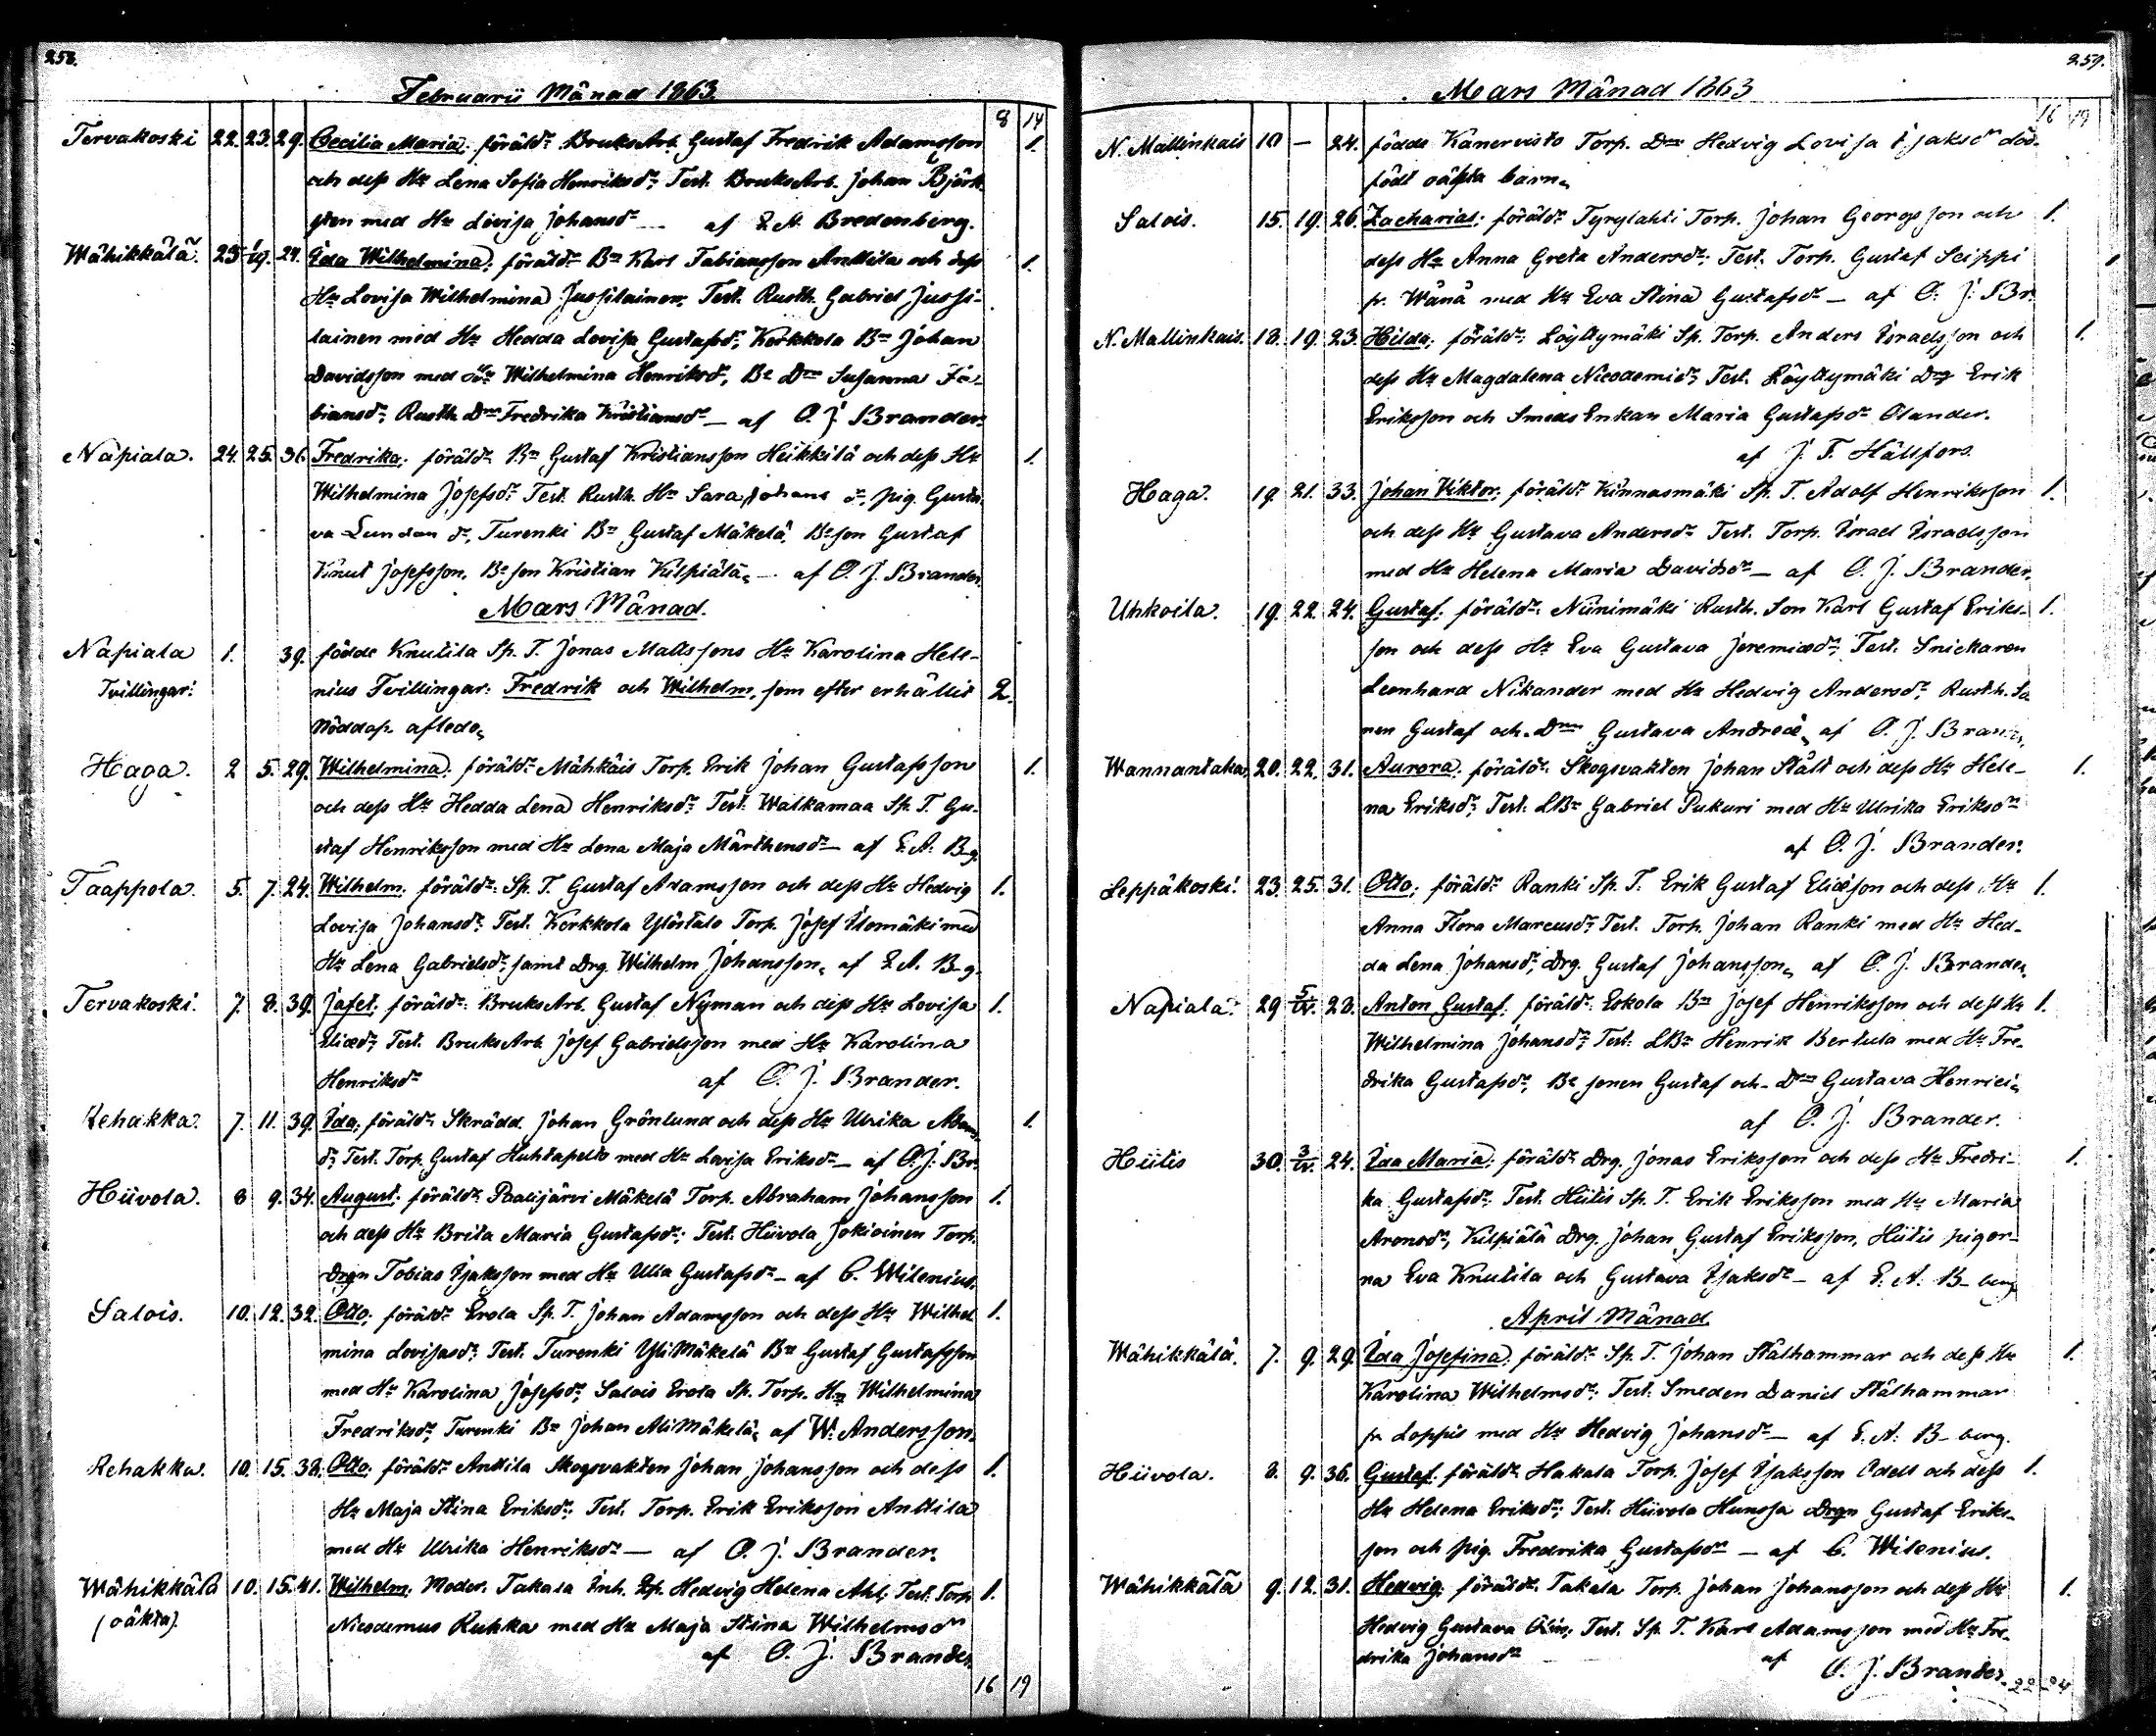 258.
Februarii Månad 1863.
8 14
Tervakoski 22. 23. 29. Cecilia Maria; föräldr BruksArb. Gustaf Fredrik Adamsson 1.
och dess Hu Lena Sofia Henriksdr; Test. BruksArb. Johan Björk-
sten med Hu Lovisa Johansdr — af E. A. Bredenberg.
Wähikkälä. 25 1/III. 24. Ida Wilhelmina; föräldr Bn Karl Fabiansson Anttila och dess 1.
Hu Lovisa Wilhelmina Jussilainen; Test. Rusth. Gabriel Jussi-
lainen med Hu Hedda Lovisa Gustafsdr, Kerkkola Bn Johan
Davidsson med Hu Wilhelmina Henriksdr, Be Dn Susanna Fa-
biansdr, Rusth. Dn Fredrika Kristiansdr — af O. J. Brander.
Napiala. 24. 25. 36. Fredrika; föräldr Bn Gustaf Kristiansson Heikkilä och dess Hu 1.
Wilhelmina Josefsdr Test. Rusth. Hu Sara Johans dr, pig. Gusta
va Lundan dr, Turenki Bn Gustaf Mäkelä, Be son Gustaf
Knut Josefsson, Be son Kristian Kilpiälä, — af O. J. Brander
Mars Månad.
Napiala 1. 39. födde Knutila Sp. T. Jonas Mattssons Hu Karolina Hele-
Tvillingar: nius Tvillingar: Fredrik och Wilhelm, som efter erhållit 2.
Nöddop. afledo,
Haga. 2 5. 29. Wilhelmina; föräldr Mähkäis Torp. Erik Johan Gustafsson 1.
och dess Hu Hedda Lena Henriksdr Test. Walkamaa Sp. T. Gu-
staf Henriksson med Hu Lena Maja Mårthensdr — af E. A. B-g.
Taappola. 5. 7. 24. Wilhelm; föräldr: Sp. T. Gustaf Adamsson och dess Hu Hedvig 1.
Lovisa Johansdr; Test. Kerkkola Ylöstalo Torp. Josef Isomäki med
Hu Lena Gabrielsdr; samt Drg. Wilhelm Johansson, af E. A. B-g.
Tervakoski. 7. 8. 39. Jafet; föräldr: BruksArb. Gustaf Nyman och dess Hu Lovisa 1.
Eliædr; Test. BruksArb. Josef Gabrielsson med Hu Karolina
Henriksdr af O. J. Brander.
Rehakka. 7. 11. 39. Ida; föräldr Skrädd. Johan Grönlund och dess Hu Ulrika Adams 1.
dr; Test. Torp. Gustaf Huhtapelto med Hu Lovisa Eriksdr — af O. J. Br.
Hiivola. 8 9. 34. August; föräldr Paalijärvi Mäkelä Torp. Abraham Johansson 1.
och dess Hu Brita Maria Gustafsdr; Test. Hiivola Jokioinen Torp.
Drgn Tobias Isaksson med Hu Ulla Gustafsdr — af C. Wilenius.
Salois. 10. 12. 32. Otto; föräldr Erola Sp. T. Johan Adamsson och dess Hu Wilhel 1.
mina Lovisasdr; Test. Turenki YliMäkelä Bn Gustaf Gustafsson
med Hu Karolina Josefsdr, Salois Erola Sp. Torp. Hu Wilhelmina
Fredriksdr, Turenki Bn Johan AliMäkelä, af W. Andersson.
Rehakka. 10. 15. 38. Otto; föräldr Anttila Skogsvakten Johan Johansson och dess 1.
Hu Maja Stina Eriksdr; Test. Torp. Erik Eriksson Anttila
med Hu Ulrika Henriksdr — af O. J. Brander.
Wähikkälä 10. 15. 41. Wilhelm; Moder. Takala Inh. Hedvig Helena Ahl; Test. Torp 1.
(oäkta). Nicodemus Ruhka med Hu Maja Stina Wilhelmsdr
af O. J. Brander.
16 19
259.
Mars Månad 1863
16 19
N. Mallinkais 10 — 24. födde Kanervisto Torp. Dn Hedvig Lovisa Isaksdr död-
födt oäkta barn,
Salois. 15. 19. 26. Zacharias; föräldr Tyrylahti Torp. Johan Georgsson och 1.
dess Hu Anna Greta Andersdr; Test. Torp. Gustaf Seippi
fr. Wånå med Hu Eva Stina Gustafsdr — af O. J. Br.
N. Mallinkais. 18. 19. 23. Hilda; föräldr; Löyttymäki Sp. Torp. Anders Israelsson och 1.
dess Hu Magdalena Nicodemidr; Test. Löyttymäki Drg Erik
Eriksson och Smeds Enkan Maria Gustafsdr Olander.
af J. F. Hällfors.
Haga. 19. 21. 33. Johan Viktor; föräldr Kinnasmäki Sp. T. Adolf Henriksson 1.
och dess Hu Gustava Andersdr Test. Torp. Israel Israelsson
med Hu Helena Maria Davidsdr — af O. J. Brander.
Uhkoila. 19. 22. 24. Gustaf; föräldr. Niinimäki Rusth. Son Karl Gustaf Eriks- 1.
son och dess Hu Eva Gustava Jeremiædr; Test. Snickaren
Leonhard Nikander med Hu Hedvig Andersdr, Rusth. So
nen Gustaf och Dn Gustava Andreæ, af O. J. Brander.
Wannantaka. 20. 22. 31. Aurora; föräldr Skogsvakten Johan Ståll och dess Hu Hele- 1.
na Eriksdr; Test. LBn Gabriel Pukuri med Hu Ulrika Eriksdr
af O. J. Brander.
Leppäkoski. 23. 25. 31. Otto; föräldr Ranki Sp. T. Erik Gustaf Eliæson och dess Hu 1.
Anna Flora Marcusdr Test. Torp. Johan Ranki med Hu Hed-
da Lena Johansdr; Drg. Gustaf Johansson, af O. J. Brander
Napiala. 29 5/IV. 28. Anton Gustaf; föräldr: Eskola Bn Josef Henriksson och dess Hu 1.
Wilhelmina Johansdr; Test. LBn Henrik Bertula med Hu Fre-
drika Gustafsdr, Be sonen Gustaf och Dn Gustava Henrici,
af O. J. Brander.
Hiitis 30. 3/IV. 24. Ida Maria; föräldr Drg. Jonas Eriksson och dess Hu Fredri- 1.
ka Gustafsdr; Test. Hiitis Sp. T. Erik Eriksson med Hu Maria
Aronsdr, Kilpiälä Drg. Johan Gustaf Eriksson, Hiitis pigor-
na Eva Knutila och Gustava Isaksdr — af E. A. B-berg
April Månad
Wähikkälä. 7. 9. 29. Ida Josefina; föräldr Sp. T. Johan Stålhammar och dess Hu 1.
Karolina Wilhelmsdr; Test. Smeden Daniel Stålhammar
fr. Loppis med Hu Hedvig Johansdr — af E. A. B-berg.
Hiivola. 8. 9. 36. Gustaf; föräldr Hakala Torp. Josef Isaksson Odell och dess 1.
Hu Helena Eriksdr; Test. Hiivola Hunsja Drgn Gustaf Eriks-
son och pig. Fredrika Gustafsdr — af C. Wilenius.
Wähikkälä 9. 12. 31. Hedvig; föräldr. Takala Torp. Johan Johansson och dess Hu 1.
Hedvig Gustava Test. Sp. T. Karl Adamsson med Hu Fre-
drika Johansdr af O. J. Brander.
22 24